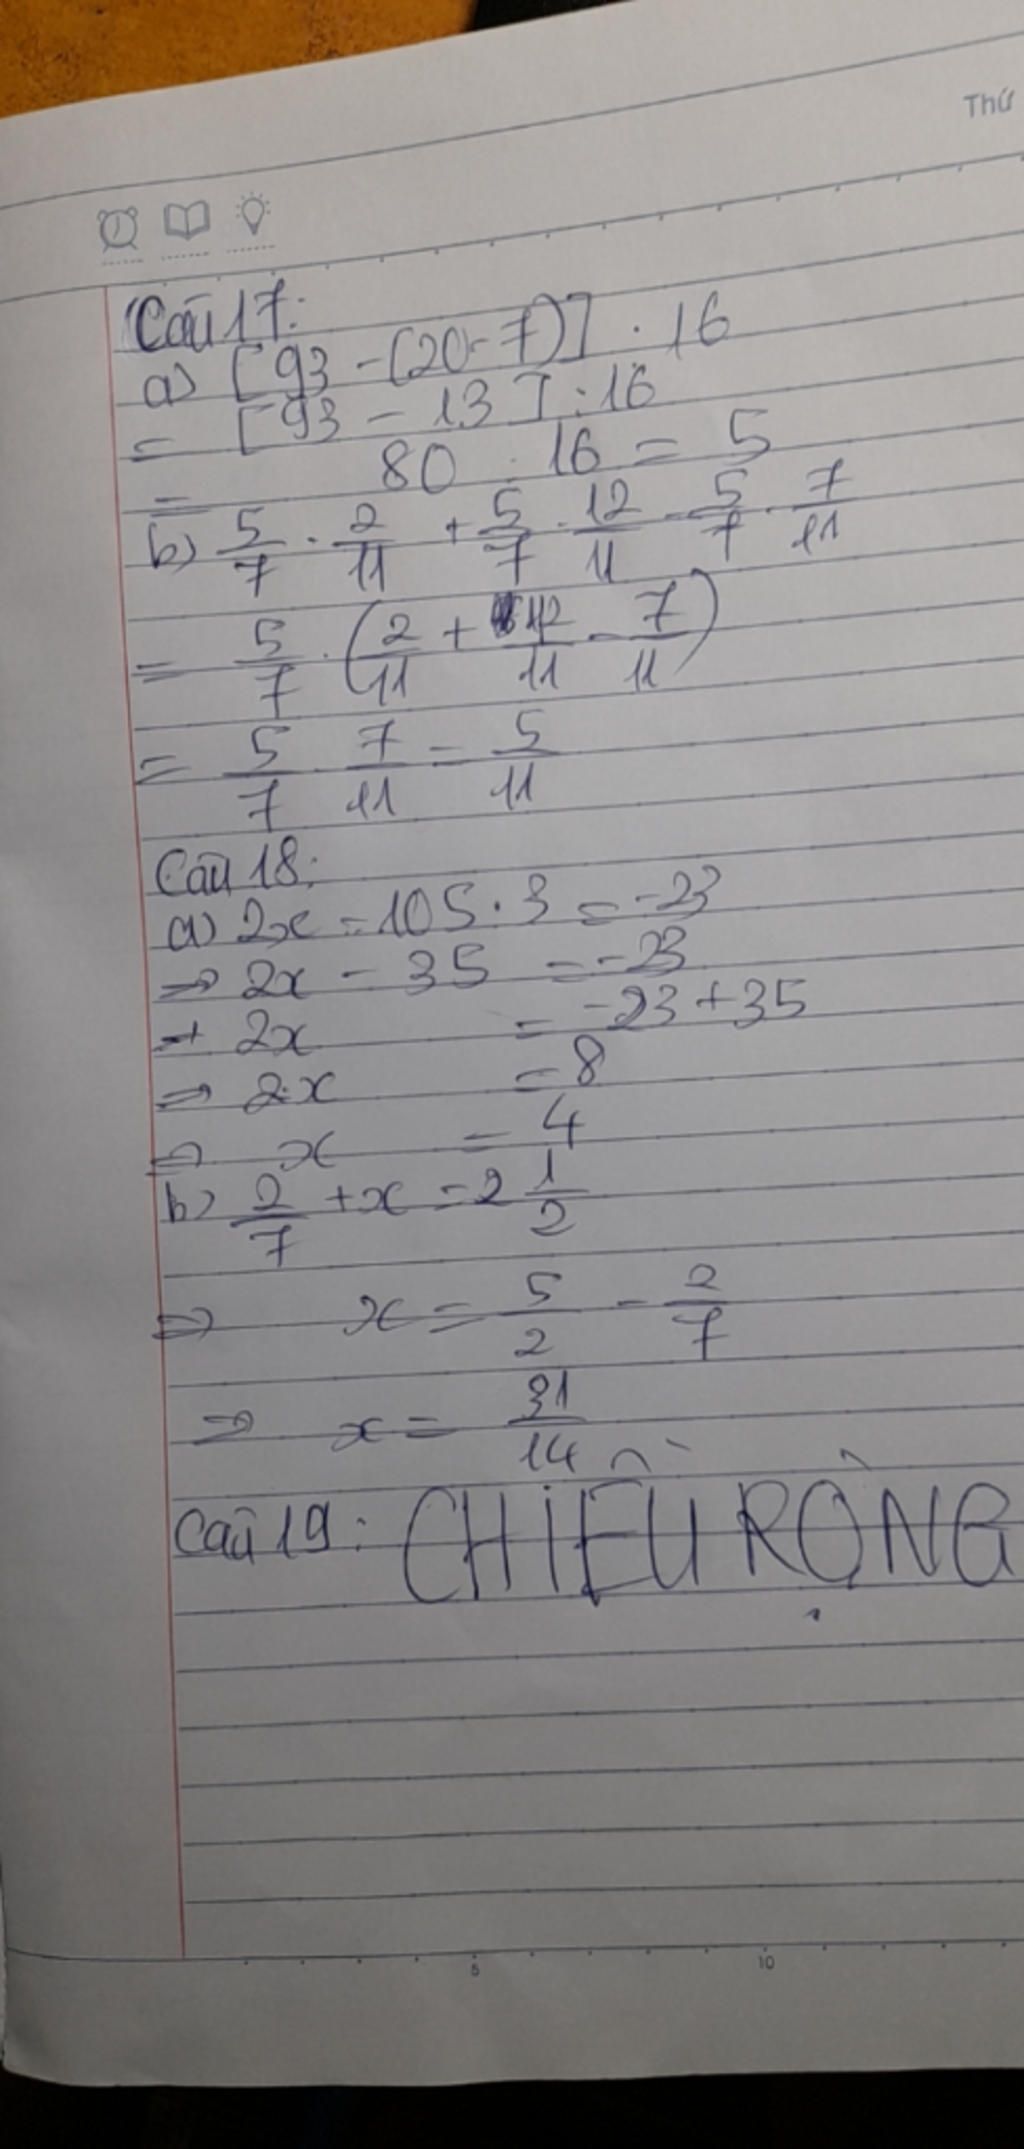 Thứ
Câu 17:
a) [93 - (20 - 7)] : 16
= [93 - 13] : 16
= 80 : 16 = 5
b) 5/7 . 2/11 + 5/7 . 12/11 - 5/7 . 7/11
= 5/7 . (2/11 + 12/11 - 7/11)
= 5/7 . 7/11 = 5/11
Câu 18:
a) 2x - 105 : 3 = -23
=> 2x - 35 = -23
→ 2x = -23 + 35
=> 2x = 8
=> x = 4
b) 2/7 + x = 2 1/2
=> x = 5/2 - 2/7
=> x = 31/14
Câu 19: CHIỀU RỘNG
5 10